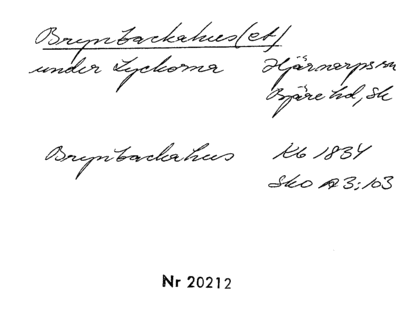 Brynbackahus(et)
under Lyckorna Hjärnarps sn
Bjäre hd, Sk
Brynbackahus Kb 1834
Sko A3:103
Nr 20212